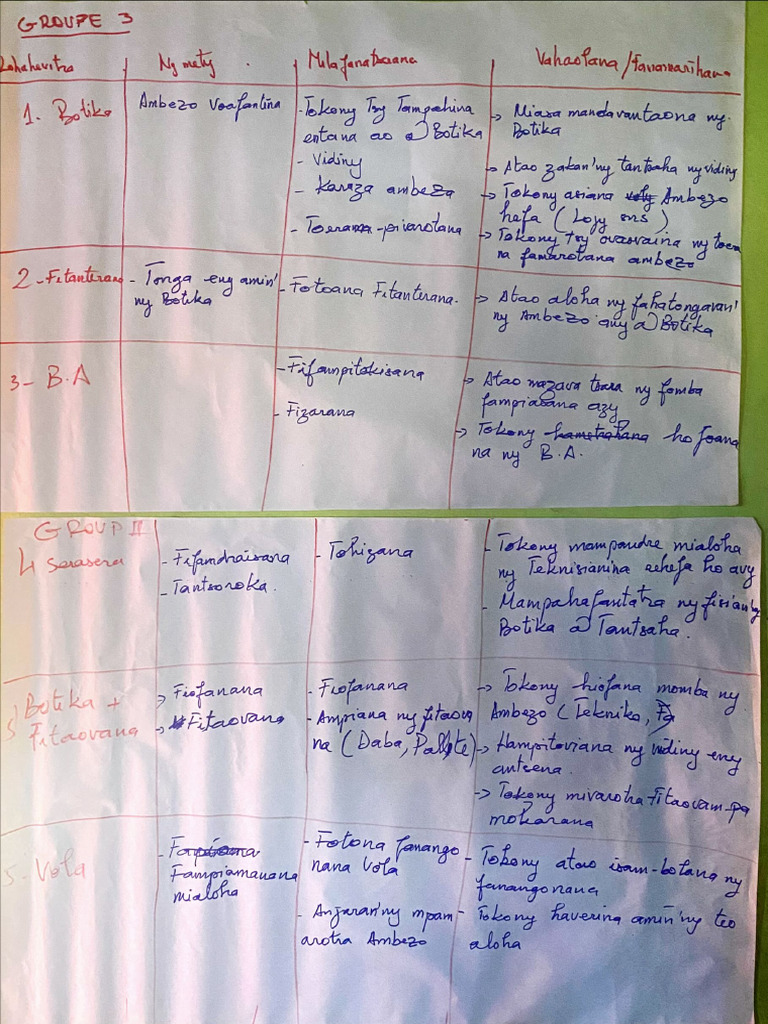 GROUPE 3
Lohahevitra Ny mety. Mila fanatsarana Vahaolana/Fanamarihana
1. Botika
Ambezo Voafantina
- Tokony Tsy Tampahina
entana ao @ Botika
- Vidiny
- Karaza ambezo
- Toerana-pivarotana
→ Miasa mandavantaona ny
Botika
→ Atao zakan'ny tantsaha ny vidiny
→ Tokony asiana Ambezo
hefa (Lojy sns)
→ Tokony tsy ovaovaina ny toera
na famarotana ambezo
2 - Fitanterana
- Tonga eny amin'
ny Botika
- Fotoana Fitanterana.
→ Atao aloha ny fahatongavan'
ny Ambezo any @ Botika
3 - B.A
- Fifampitokisana
- Fizarana
→ Atao mazava tsara ny fomba
fampiasana azy
→ Tokony hametrahana ho foana
na ny B.A.
GROUP II
4 Serasera
- Fifandraisana
- Tantsoroka.
- Tohizana
- Tokony mampandre mialoha
ny Teknisianina rehefa ho avy
- Mampahafantatra ny fisian'ny
Botika @ Tantsaha.
5 Botika +
Fitaovana
→ Fiofanana
→ Fitaovana
- Fiofanana
- Ampiana ny fitaova
na (Daba, Pallete)
→ Tokony hiofana momba ny
Ambezo (Tekniko,
→ Hampitoviana ny vidiny eny
antsena.
→ Tokony mivarotra Fitaovam-pa
mokarana
5 - Vola
- Fampiamanana
mialoha
- Fotona fanango
nana Vola
- Anjaran'ny mpam
arotra Ambezo
- Tokony atao isam-bolana ny
fanangonana
- Tokony haverina amin'ny teo
aloha